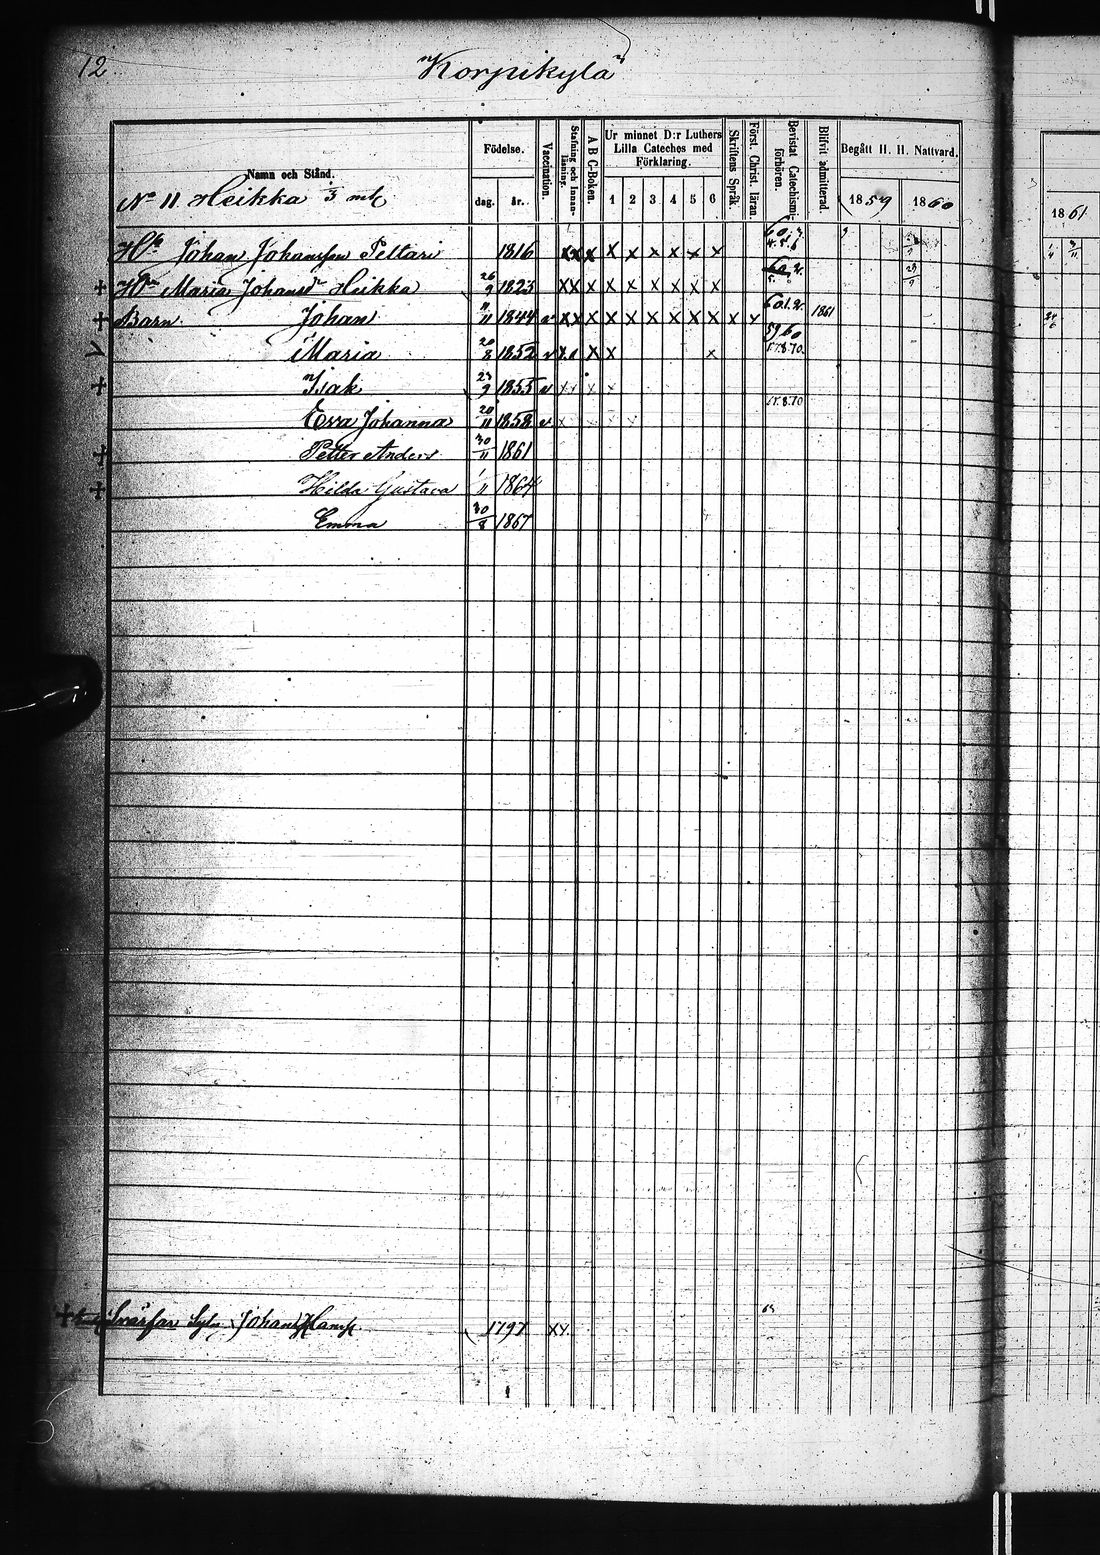 12
"Korpikylä"
Namn och Stånd.
Födelse.
dag.
år.
Vaccination.
Stafning och Innan-läsning.
A B C-Boken.
Ur minnet D:r Luthers
Lilla Cateches med
Förklaring.
1 2 3 4 5 6
Skriftens Språk.
Först. Christ. läran.
Bevistat Catechismi-förhören.
Blifvit admitterad.
Begått H. H. Nattvard.
1859 1860
1861
No 11 Heikka 3 mtl
Johan Johansson Pettari 1816 X X X X X X X X X
+ Maria Johansdr Heikka 26/9 1823 X X X X X X X X
+ Barn Johan 11/11 1844 v X X X X X X X X X X X 1861
Maria 20/8 1852 v X X X
+ Isak 23/9 1855 v
Eva Johanna 20/11 1858 v
+ Petter Anders 30/11 1861
+ Hilda Gustava 1/11 1864
Emma 30/8 1867
+ Svärfar Johan 1797 X X